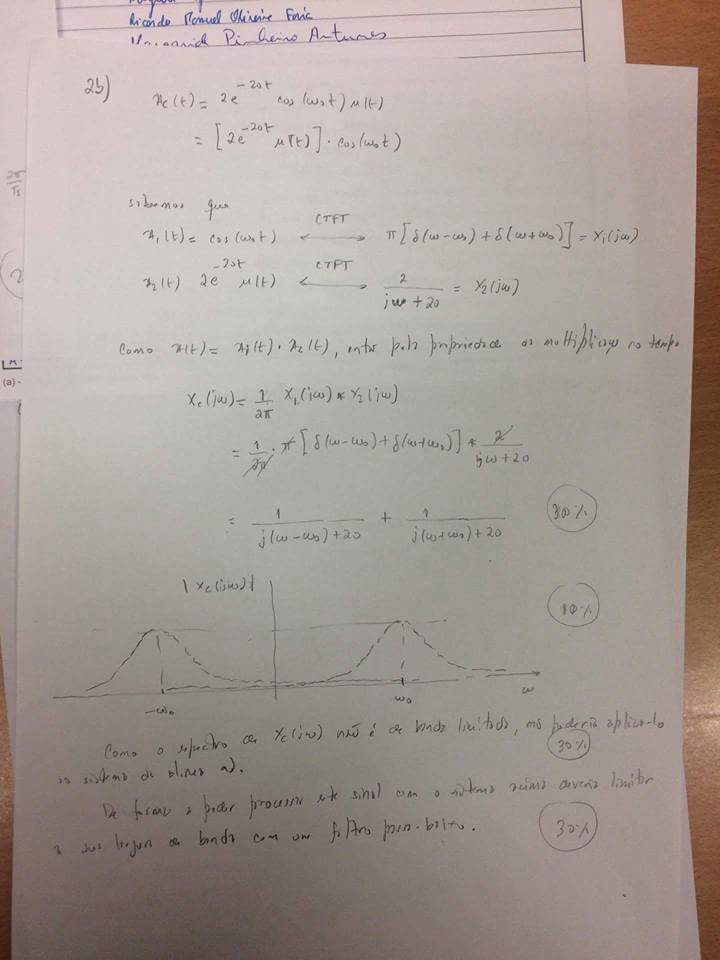 Ricardo Manuel Oliveira Faria
Pinheiro Antunes
2b)
x_c(t) = 2e^{-20t} cos(ω₀t) μ(t)
= [2e^{-20t} μ(t)] · cos(ω₀t)
sabemos que
x₁(t) = cos(ω₀t) ⟷ CTFT π[δ(ω-ω₀) + δ(ω+ω₀)] = X₁(jω)
x₂(t) 2e^{-20t} μ(t) ⟷ CTFT 2/(jω+20) = X₂(jω)
Como x(t) = x₁(t) · x₂(t), então pela propriedade da multiplicação no tempo
X_c(jω) = 1/2π X₁(jω) * X₂(jω)
= 1/2π · π [δ(ω-ω₀) + δ(ω+ω₀)] * 2/(jω+20)
= 1/(j(ω-ω₀)+20) + 1/(j(ω+ω₀)+20) 30%
|X_c(jω)| 10%
-ω₀ ω₀ ω
Como o espectro de X_c(jω) não é de banda limitada, não poderia aplicá-lo
ao sistema da alínea a). 30%
De forma a poder processar este sinal com o sistema acima deveria limitar
a sua largura de banda com um filtro passa-baixo. 30%
(a) -